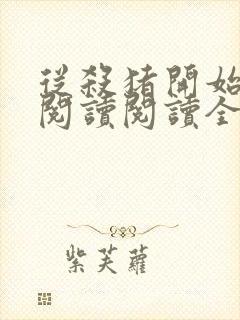 從殺豬開始
閱讀閱讀全
紫芙蘿